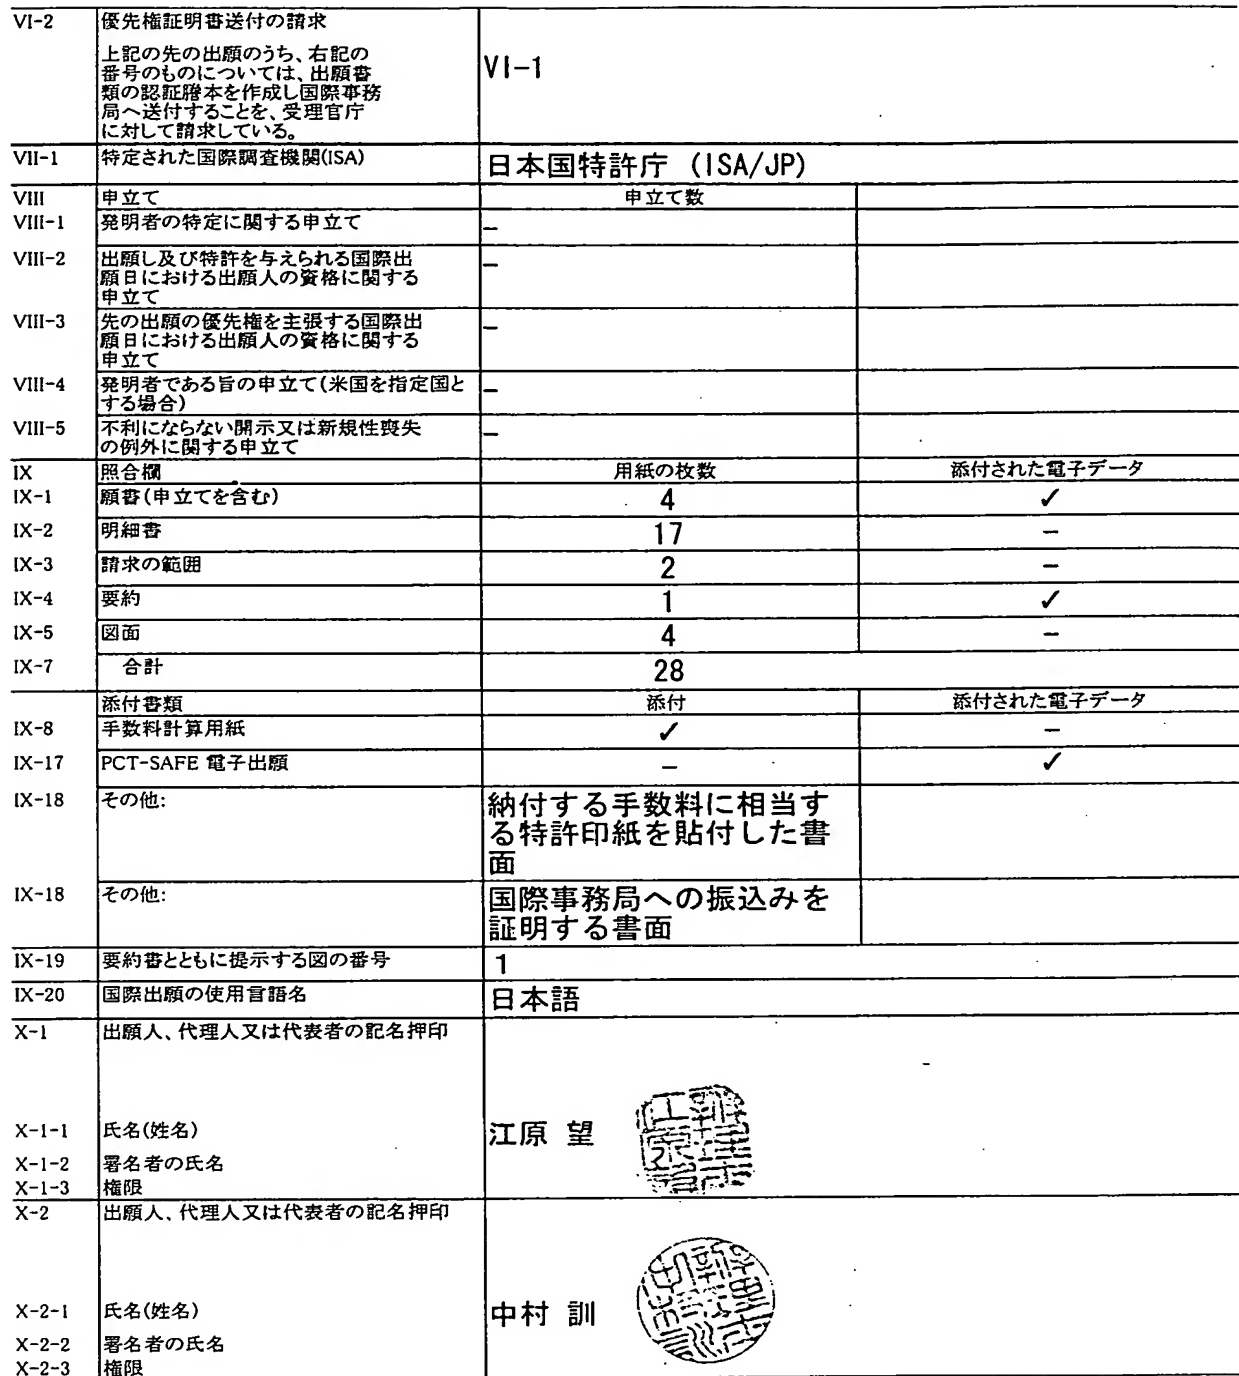 VI-2 優先権証明書送付の請求
上記の先の出願のうち、右記の
番号のものについては、出願書
類の認証謄本を作成し国際事務
局へ送付することを、受理官庁
に対して請求している。
VI-1
VII-1 特定された国際調査機関(ISA) 日本国特許庁 (ISA/JP)
VIII 申立て 申立て数
VIII-1 発明者の特定に関する申立て –
VIII-2 出願し及び特許を与えられる国際出
願日における出願人の資格に関する
申立て
–
VIII-3 先の出願の優先権を主張する国際出
願日における出願人の資格に関する
申立て
–
VIII-4 発明者である旨の申立て(米国を指定国と
する場合)
–
VIII-5 不利にならない開示又は新規性喪失
の例外に関する申立て
–
IX 照合欄 用紙の枚数 添付された電子データ
IX-1 願書(申立てを含む) 4 ✓
IX-2 明細書 17 –
IX-3 請求の範囲 2 –
IX-4 要約 1 ✓
IX-5 図面 4 –
IX-7 合計 28
添付書類 添付 添付された電子データ
IX-8 手数料計算用紙 ✓ –
IX-17 PCT-SAFE 電子出願 – ✓
IX-18 その他: 納付する手数料に相当す
る特許印紙を貼付した書
面
IX-18 その他: 国際事務局への振込みを
証明する書面
IX-19 要約書とともに提示する図の番号 1
IX-20 国際出願の使用言語名 日本語
X-1 出願人、代理人又は代表者の記名押印
X-1-1 氏名(姓名) 江原 望
X-1-2 署名者の氏名
X-1-3 権限
X-2 出願人、代理人又は代表者の記名押印
X-2-1 氏名(姓名) 中村 訓
X-2-2 署名者の氏名
X-2-3 権限